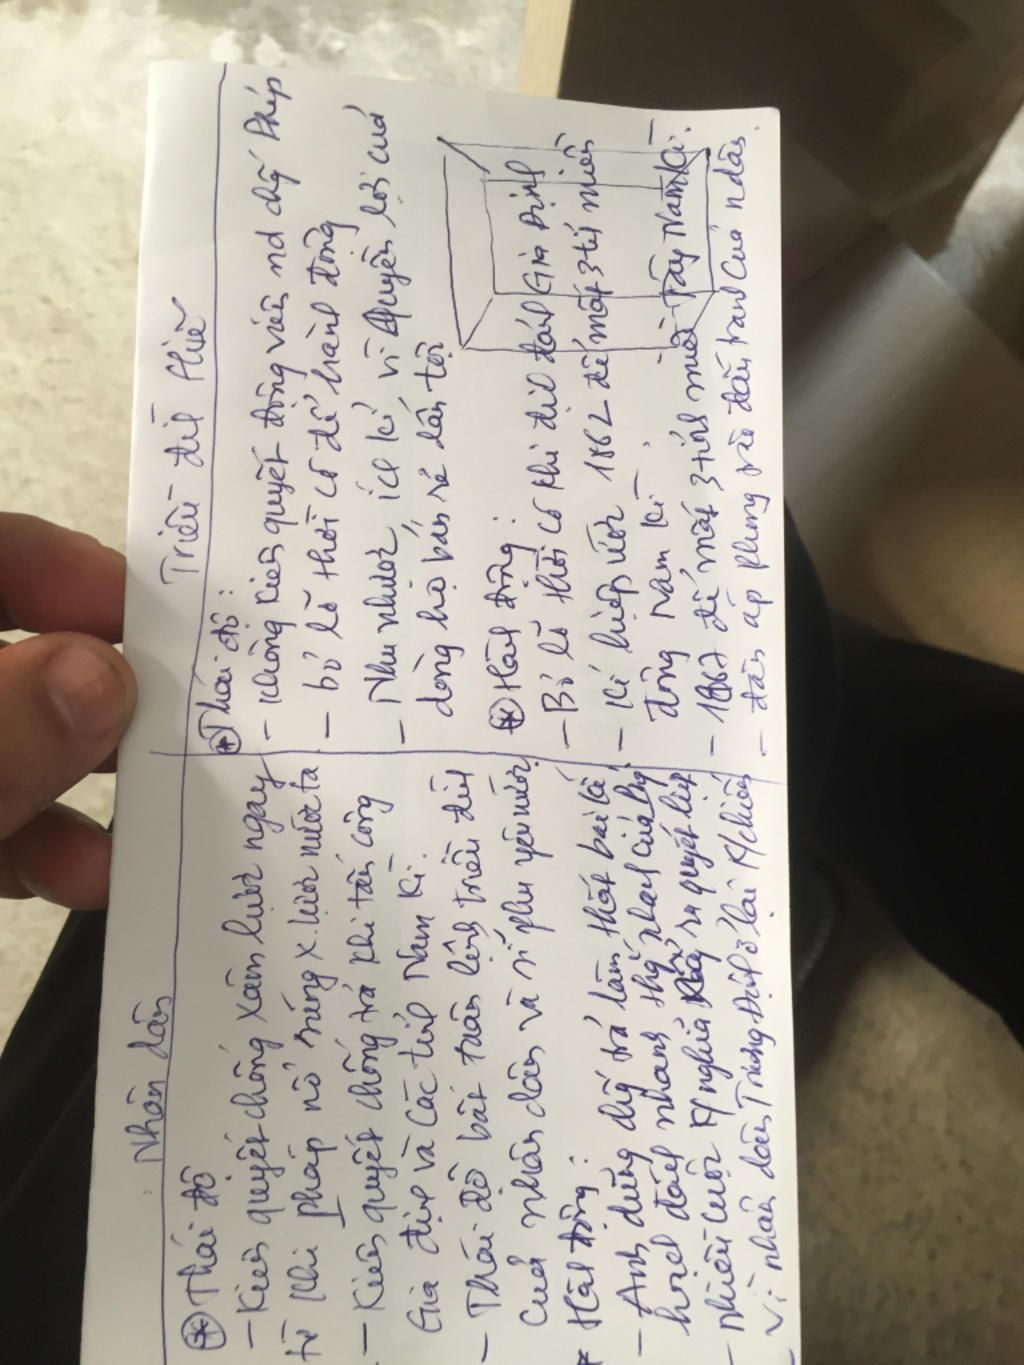 Nhân dân
⊛ Thái độ
- Kiên quyết chống xâm lược ngay
từ khi Pháp nổ súng x.lược nước ta
- Kiên quyết chống trả khi tấn công
Gia định và các tỉnh Nam Kì.
- Thái độ bất tuân lệnh triều đình
của nhân dân vì yêu nước
* Hành động:
- Anh dũng chống trả làm thất bại kế
hoạch đánh nhanh thắng nhanh của
- nhiều cuộc K nghĩa nổ ra quyết liệt
ví nhân dân Trương Định ở lại K/chiến
Triều đình Huế
⊛ Thái độ:
- Không kiên quyết động viên nd chống Pháp
- bỏ lỡ thời cơ để hành động
- Nhu nhược, ích kỉ, vì quyền lợi của
dòng họ bán rẻ dân tộc
⊛ Hành động:
- Bỏ lỡ thời cơ khi địch đánh Gia Định
- Kí hiệp ước 1862 để mất 3 tỉnh miền
đông Nam Kì.
- 1867 để mất 3 tỉnh miền Tây Nam Kì.
- đàn áp phong trào đấu tranh của ndân.